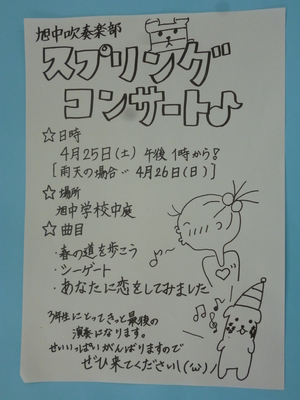 旭中吹奏楽部
スプリング
コンサート♪
☆日時
4月25日(土) 午後1時から!
[雨天の場合…4月26日(日)]
☆場所
旭中学校中庭
☆曲目
・春の道を歩こう
・シーゲート
・あなたに恋をしてみました
3年生にとってきっと最後の
演奏になります。
せいいっぱいがんばりますので
ぜひ来てください!(´ω`)